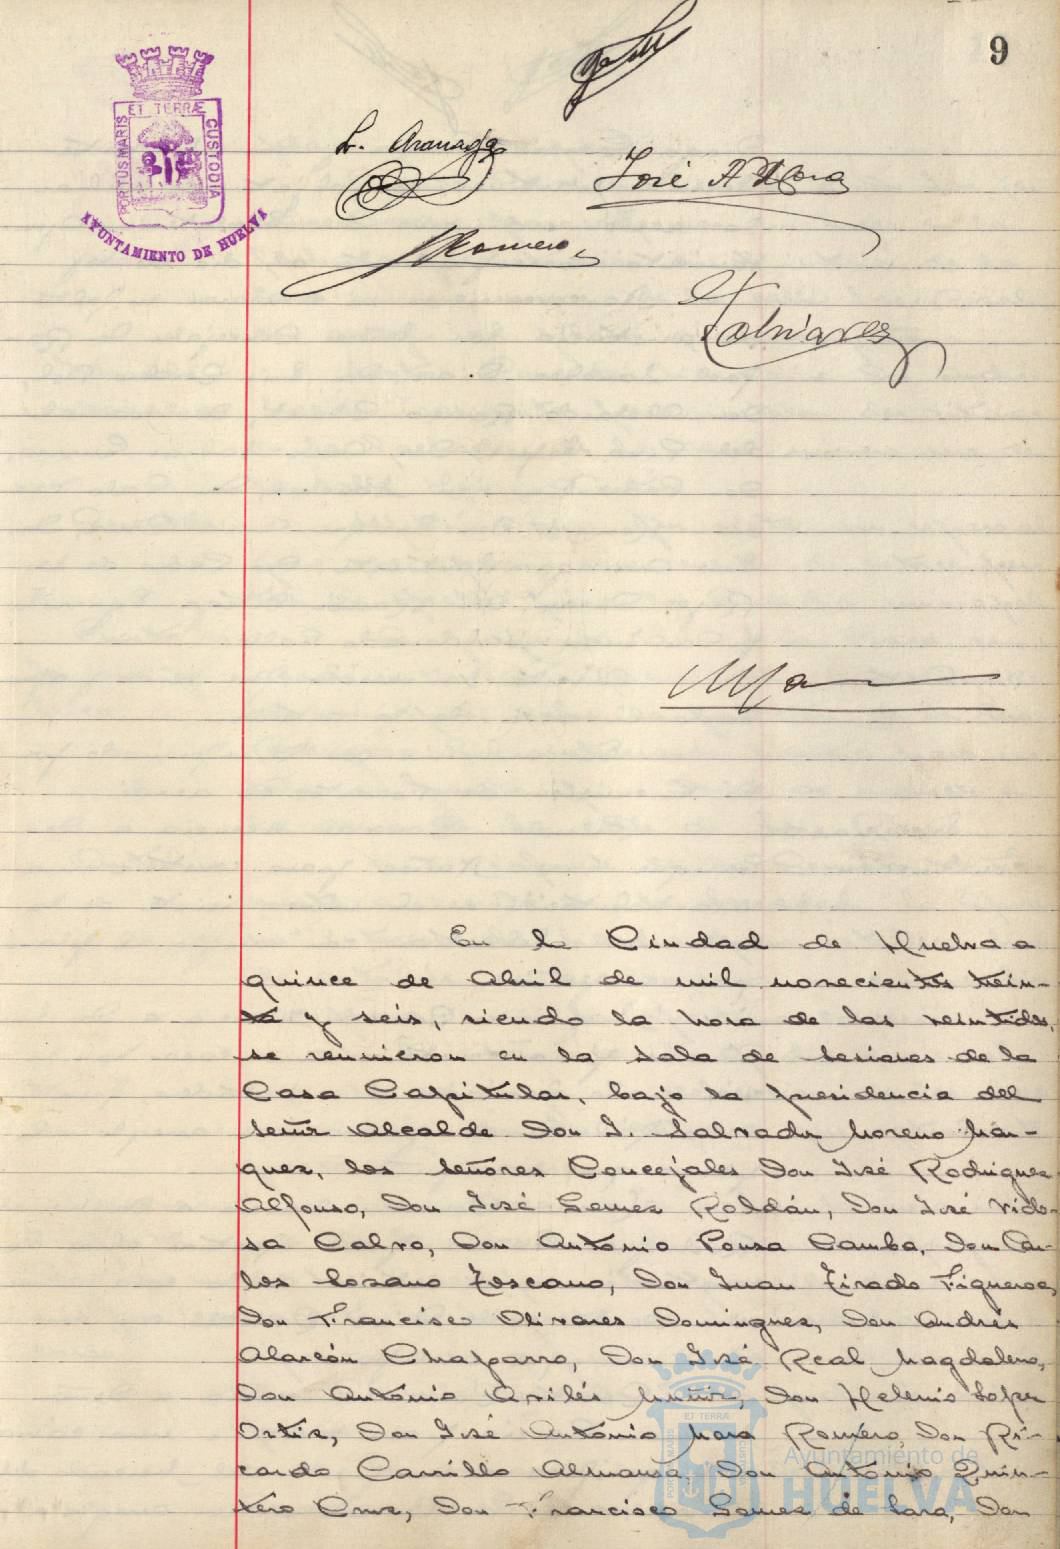 9
ET TERRÆ
PORTUS MARIS
CUSTODIA
AYUNTAMIENTO DE HUELVA
José A Mora
Romero
Olivares
En la Ciudad de Huelva a
quince de Abril de mil novecientos trein-
ta y seis, siendo la hora de las veintidos,
se reunieron en la Sala de Sesiones de la
Casa Capitular, bajo la presidencia del
Señor Alcalde Don J. Salvador Moreno Már-
quez, los señores Concejales Don José Rodriguez
Alfonso, Don José Gomez Roldán, Don José Vido-
sa Calvo, Don Antonio Pousa Camba, Don Car-
los Lozano Toscano, Don Juan Tirado Figueroa,
Don Francisco Olivares Dominguez, Don Andrés
Alarcón Chaparro, Don José Real Magdaleno,
Don Antonio Avilés Muñiz, Don Helenio Lopez
Ortiz, Don José Antonio Mora Romero, Don Ri-
cardo Carrillo Almansa, Don Antonio Quin-
tero Cruz, Don Francisco Gomez de Lara, Don
Ayuntamiento de
HUELVA